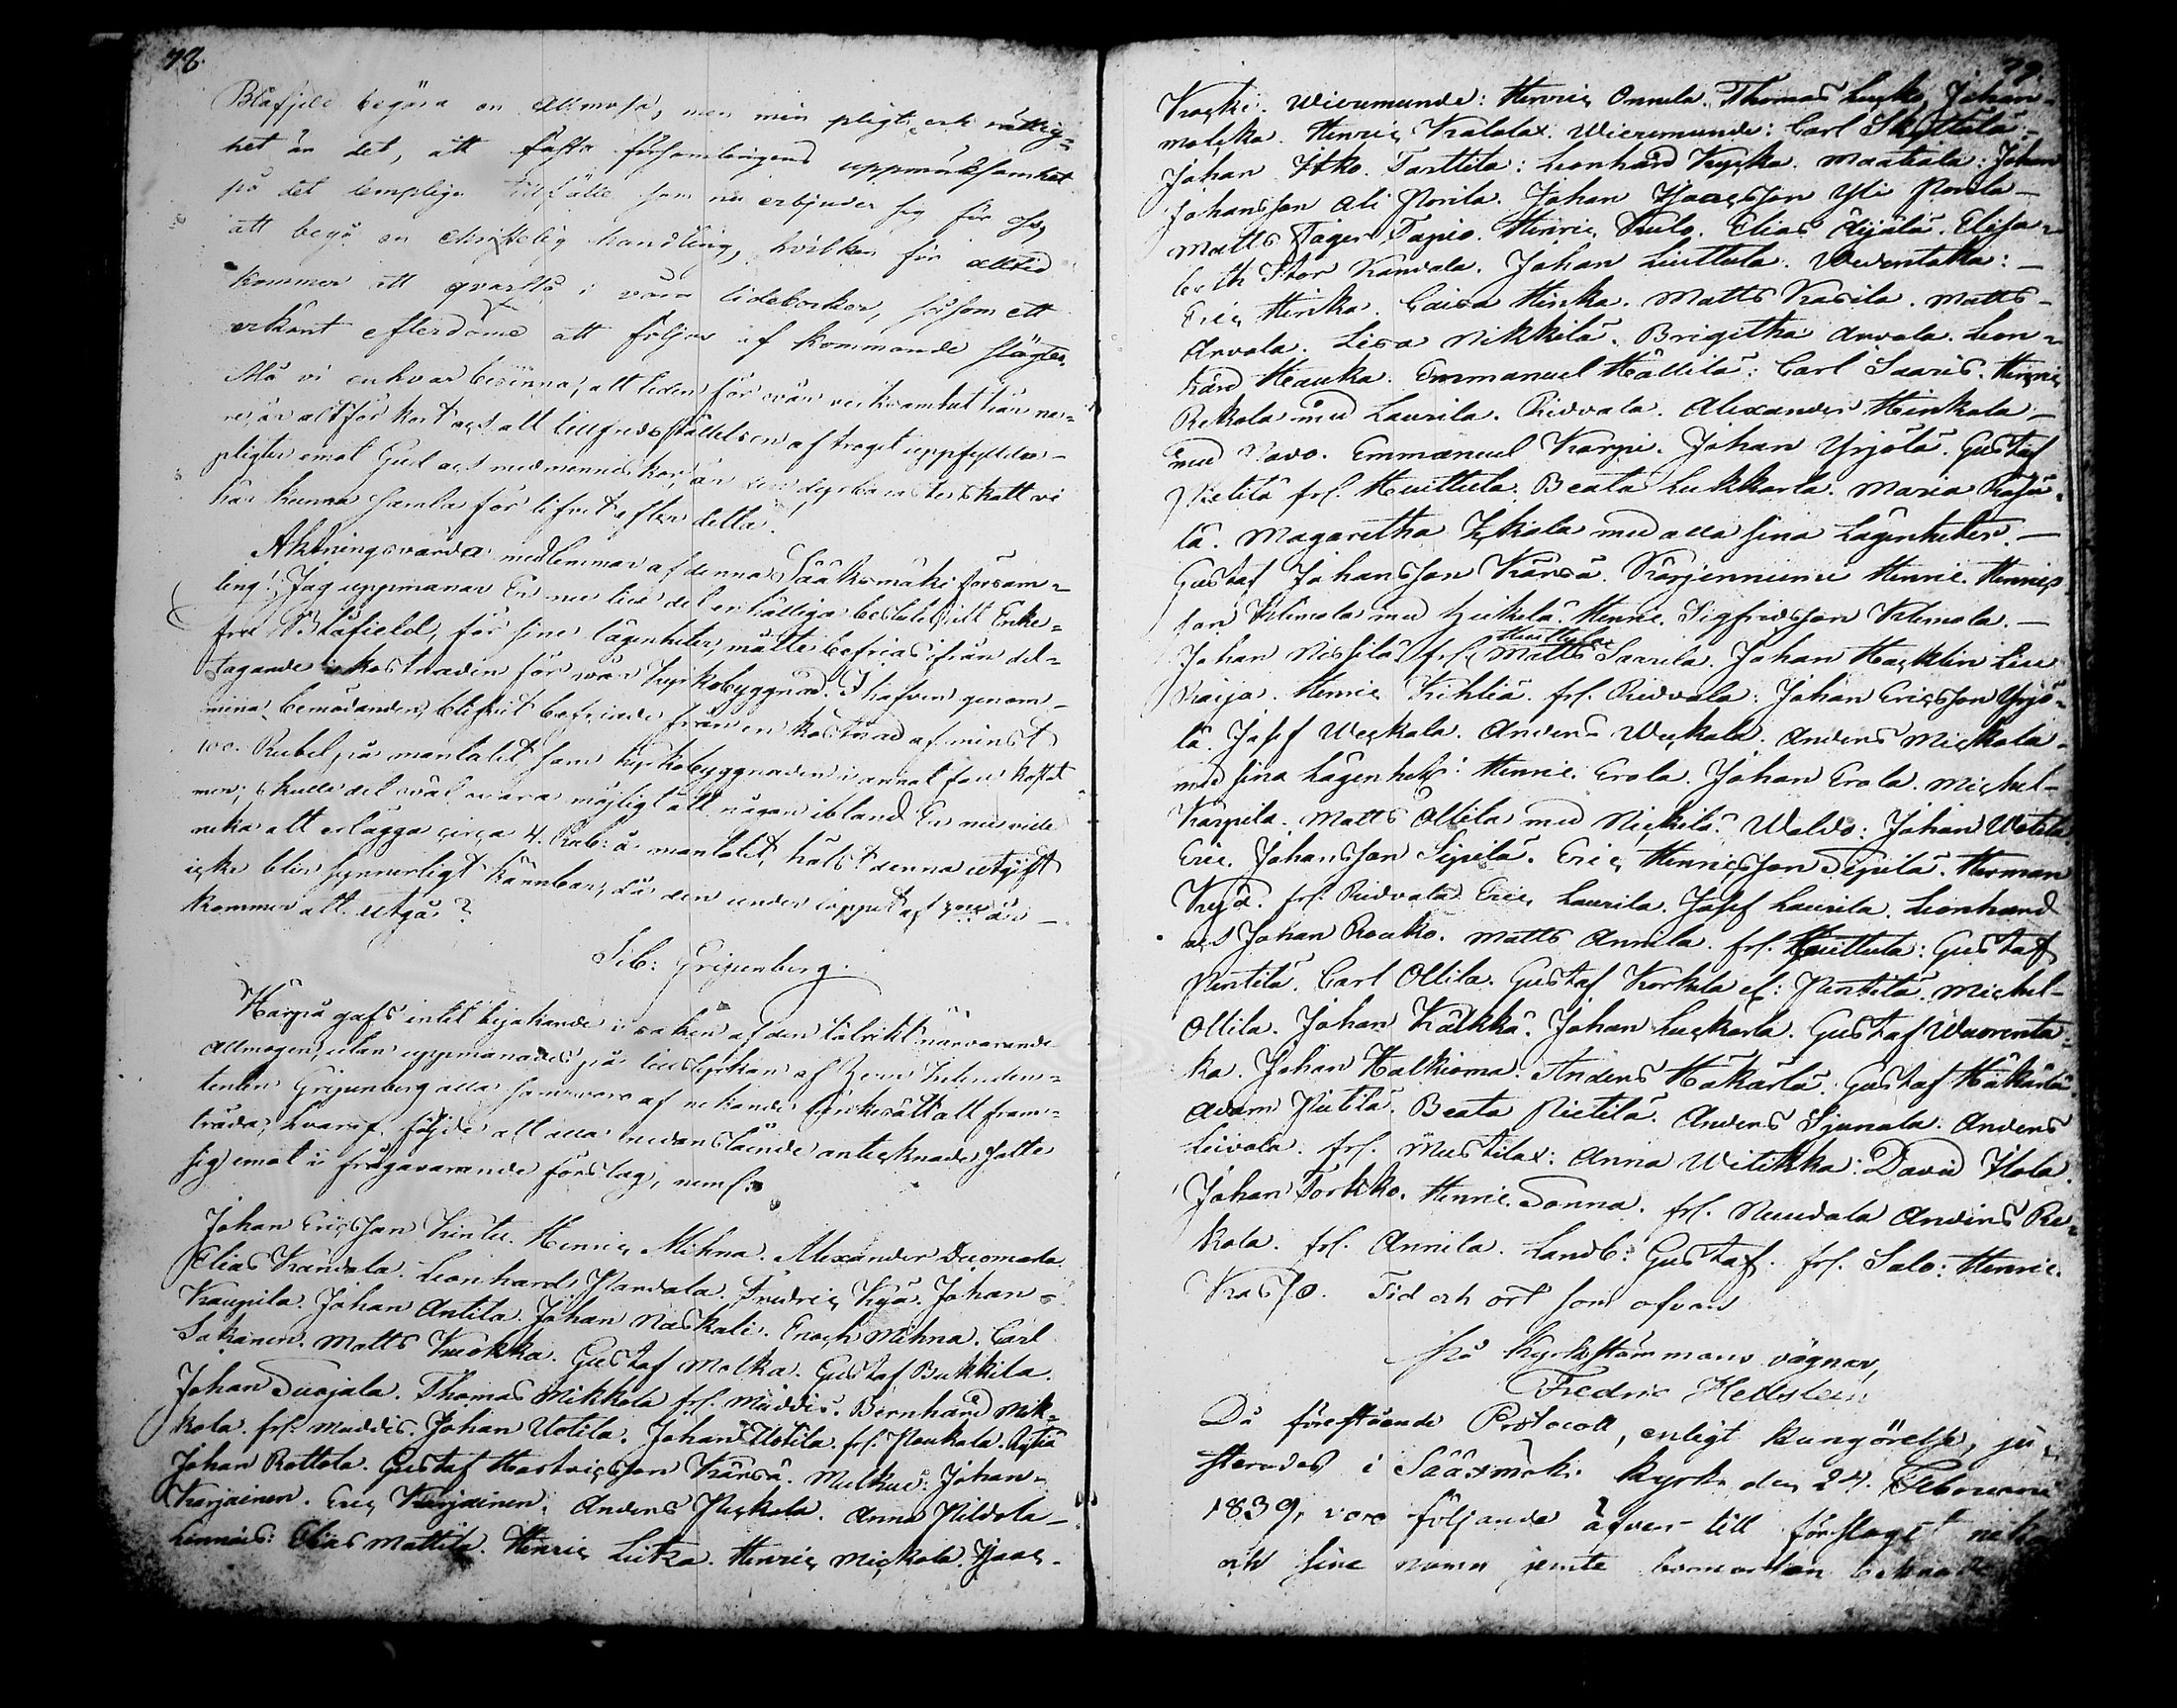 78.
Blåfjeld begära en allmosa, men min pligt och rättig=
het är det, att fästa församlingens uppmärksamhet
på det lempliga tillfälle som nu erbjuder sig för oss,
att begå en christelig handling, hvilken för alltid
kommer att qvarstå i våra tideböcker, såsom ett
erkänt efterdöme att följas af kommande slägter.
Må vi enhvar besinna, att tiden för vår verksamhet här ne=
re, är altför kort och att tillfredsställelsen af troget uppfyllda
pligter emot Gud och medmenniskor, är den dyrbaraste skatt vi
här kunna samla för lifvet efter detta.
Aktningsvärda medlemmar af denna Sääksmäki försam=
ling! Jag uppmanar Er nu till det enhälliga beslut, att Enke=
fru Blåfield, för sine lägenheter, måtte befrias ifrån del=
tagande i kostnaden för vår kyrkobyggnad. I hafven genom
mina bemödanden, blifvit befriade från en kostnad af minst
100. Rubel på mantalet som kyrkobyggnaden i annat fall kostat
mer; skulle det väl vara möjligt att någon ibland Er nu ville
neka att erlägga circa 4. Rub: å mantalet, hälst denna utgift
icke blir synnerligt kännbar, då den under loppet af år
kommer att utgå?
Seb: Gripenberg.
Härpå gafs intet bejakande i saken af den talrikt närvarande
Allmogen, utan uppmanades på tillstyrkan af Herr Intenden=
tenten Gripenberg alla som voro af nekande tänkesätt att fram=
träda, hvarpå följde att alla nedanstående antecknade satte
sig emot i frågavarande förslag, neml.
Johan Ericsson Kintu. Henric Mihna. Alexander Duomola
Elias Kandala. Leonhard Pandala. Fredric Kyä. Johan
Kaupila. Johan Antila. Johan Naskali. Enoch Mihna. Carl
Sakanen. Matts Kuokka. Gustaf Molka. Gustaf Bukkila.
Johan Duojala. Thomas Mikkola frl. Muddis. Bernhard Mik=
kola. frl. Muddis. Johan Uotila. Johan Uotila. frl. Poukala.
Johan Rottola. Gustaf Kärsä. Mulkus: Johan
Karjainen. Eric Karjainen. Anders Peckola. Anna Pildola
Linnais: Elias Mattila. Henric Liuka. Henric Mickola. Isaac
79.
Kacki. Wieremunde: Henric Onnela. Thomas Johan
Henric Kalalax. Wieremunde: Carl Skyttälä
Johan Itko. Tarttila: Leonhard Kycka. Maatiala: Johan
Johansson Ali Nonila. Johan Isacsson Yli Nonila
Matts Tapio. Henric Kulo. Elias Äijälä. Elisa=
beth Stor Kandala. Johan Liuttula. Wuorentaka:
Eric Hinka. Caisa Hinka. Matts Kasila. Matts
Arvola. Lisa Nikkilä. Brigitha Arvola. Leon=
hard Hauka. Emmanuel Hällilä: Carl Saaris. Henric
Rekola med Laurila. Ridvala. Alexander Heinkala
med Navo. Emmanuel Karpi. Johan Yrjölä. Gustaf
Pietilä frl. Huittula. Beata Lukkarla. Maria
lä. Magaretha med alla sina Lägenheter.
Gustaf Johansson Kärsä. Karjenniemi Henric. Henrics
son Klemola med Heikelä. Henric. Sigfridsson Klemola.
Johan Nissilä. frl. Huittula Matts Saarela. Johan Hacklin
Raija. Henric Kihliä. frl. Ridvala: Johan Ericsson Yrjö=
lä. Josef Weckala. Anders Weckala. Anders Mickola
med sina Lägenhetr. Henric. Erola. Johan Erola. Michel
Karpila. Matts Ollila med Nickilä. Waldo: Johan Wotila
Eric. Johansson Sipilä. Eric Henricsson Sipilä. Herman
Kyä. frl. Ridvala Eric Laurila. Josef Laurila. Leonhard
och Johan Rauko. Matts Annila. frl. Huittula: Gustaf
Pentilä. Carl Ollila. Gustaf Korkila el: Pentilä. Michel
Ollila. Johan Kälkkä. Johan Luckarla. Gustaf Wuorenta=
ka. Johan Halkioma. Anders Hakärlä. Gustaf Häkärlä.
Adam Pietilä. Beata Pietilä. Anders Sjunala. Anders
Liivola. frl. Mustilax: Anna Witikka: David Ilola.
Johan Torkko. Henric. Sonna. frl. Nuudala Anders Re=
kola. frl. Annila. Landb: Gustaf. frl. Salo: Henric.
Krasso. Tid och ort som ofvan
På Kyrkstämmans vägnar,
Fredric Hellsten
Då förestående Protocoll, enligt kungörelse, ju=
sterades i Sääxmäki kyrka den 24. Februarii
1839, voro följande äfven till förslaget
och sine namn jemte bomärken